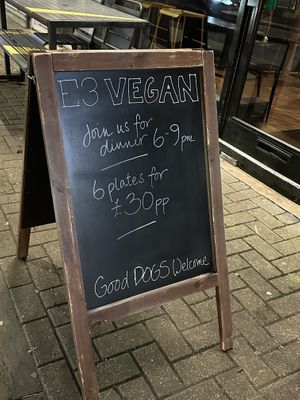 E3 VEGAN
Join us for
dinner 6-9pm
6 plates for
£30pp
Good DOGS Welcome